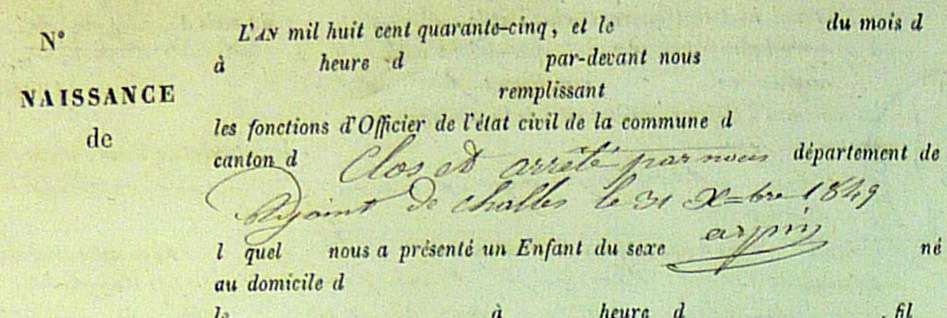 N°
L'AN mil huit cent quarante-cinq, et le du mois d
à heure d par-devant nous
NAISSANCE
remplissant
de
les fonctions d'Officier de l'état civil de la commune d
canton d Clos et arrêté par nous département de
adjoint de Challes le 31 X=bre 1849
arpin
l quel nous a présenté un Enfant du sexe né
au domicile d
le à heure d , fil